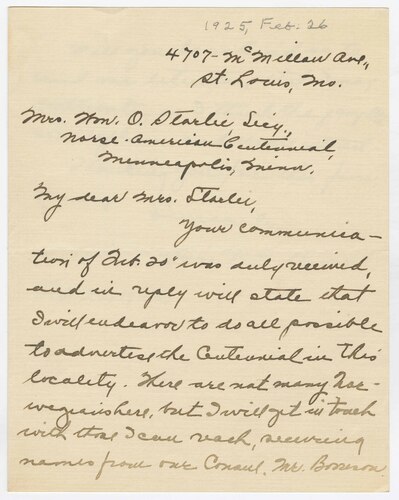 1925, Feb. 26
4707 - McMillan Ave.,
St. Louis, Mo.
Mrs. Wm. O. Storlie, Secy.,
Norse-American Centennial,
Minneapolis, Minn.
My dear Mrs. Storlie,
Your communica-
tion of Feb. 20" was duly received,
and in reply will state that
I will endeavor to do all possible
to advertise the Centennial in this
locality. There are not many Nor-
wegians here, but I will get in touch
with those I can reach, securing
names from our Consul, Mr.